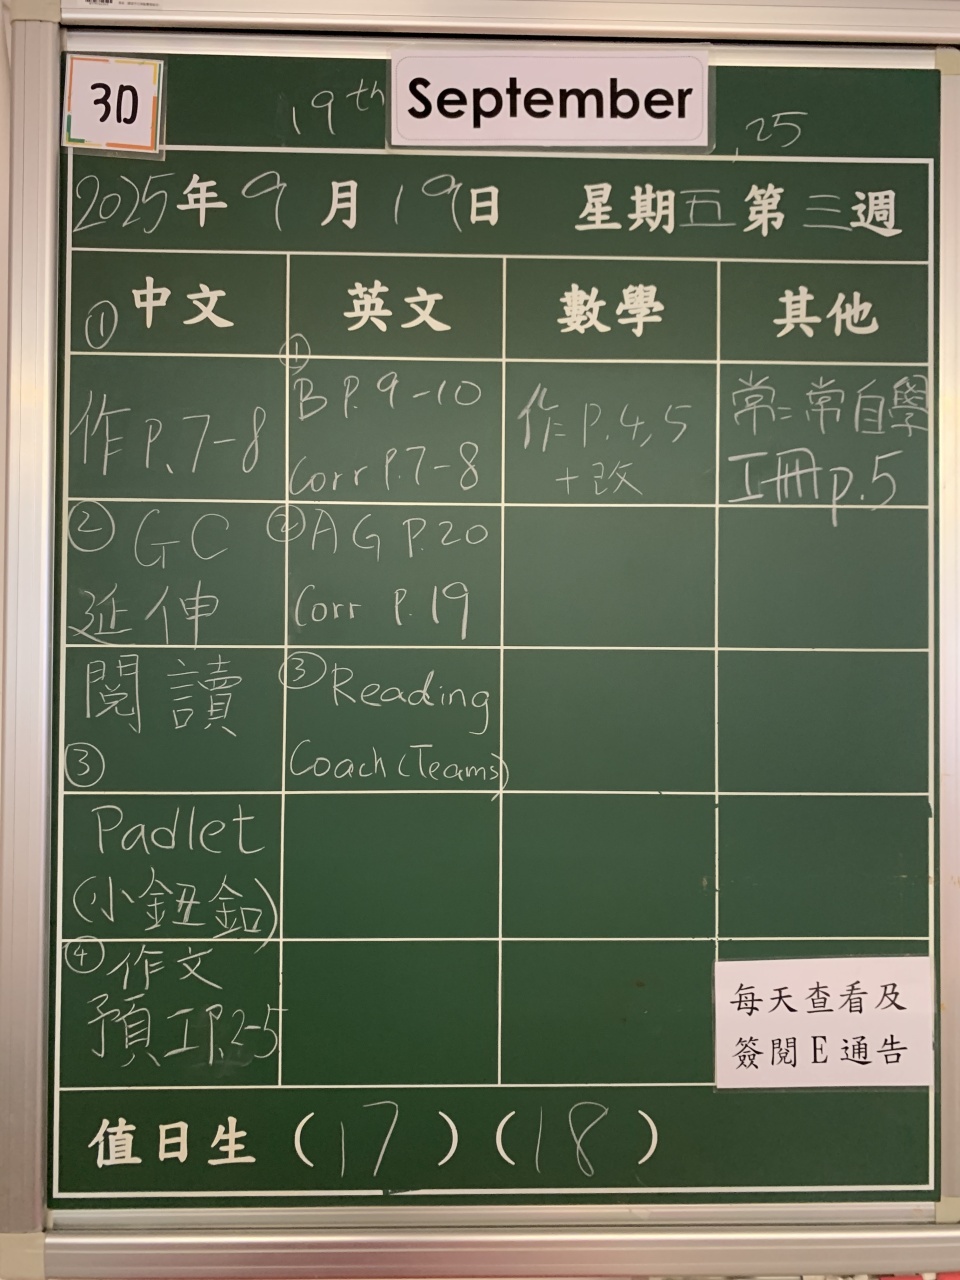 3D
19th September, 25
2025年9月19日 星期五第三週
①中文 英文 數學 其他
作P.7-8
② GC
延伸
閱讀
③
Padlet
(小鈕釦)
④作文
預工P.2-5
①
B P.9-10
Corr P.7-8
②AG P.20
Corr P.19
③Reading
Coach (Teams)
作=P.4,5
+改
常=常自學
工冊p.5
每天查看及
簽閱E通告
值日生(17)(18)